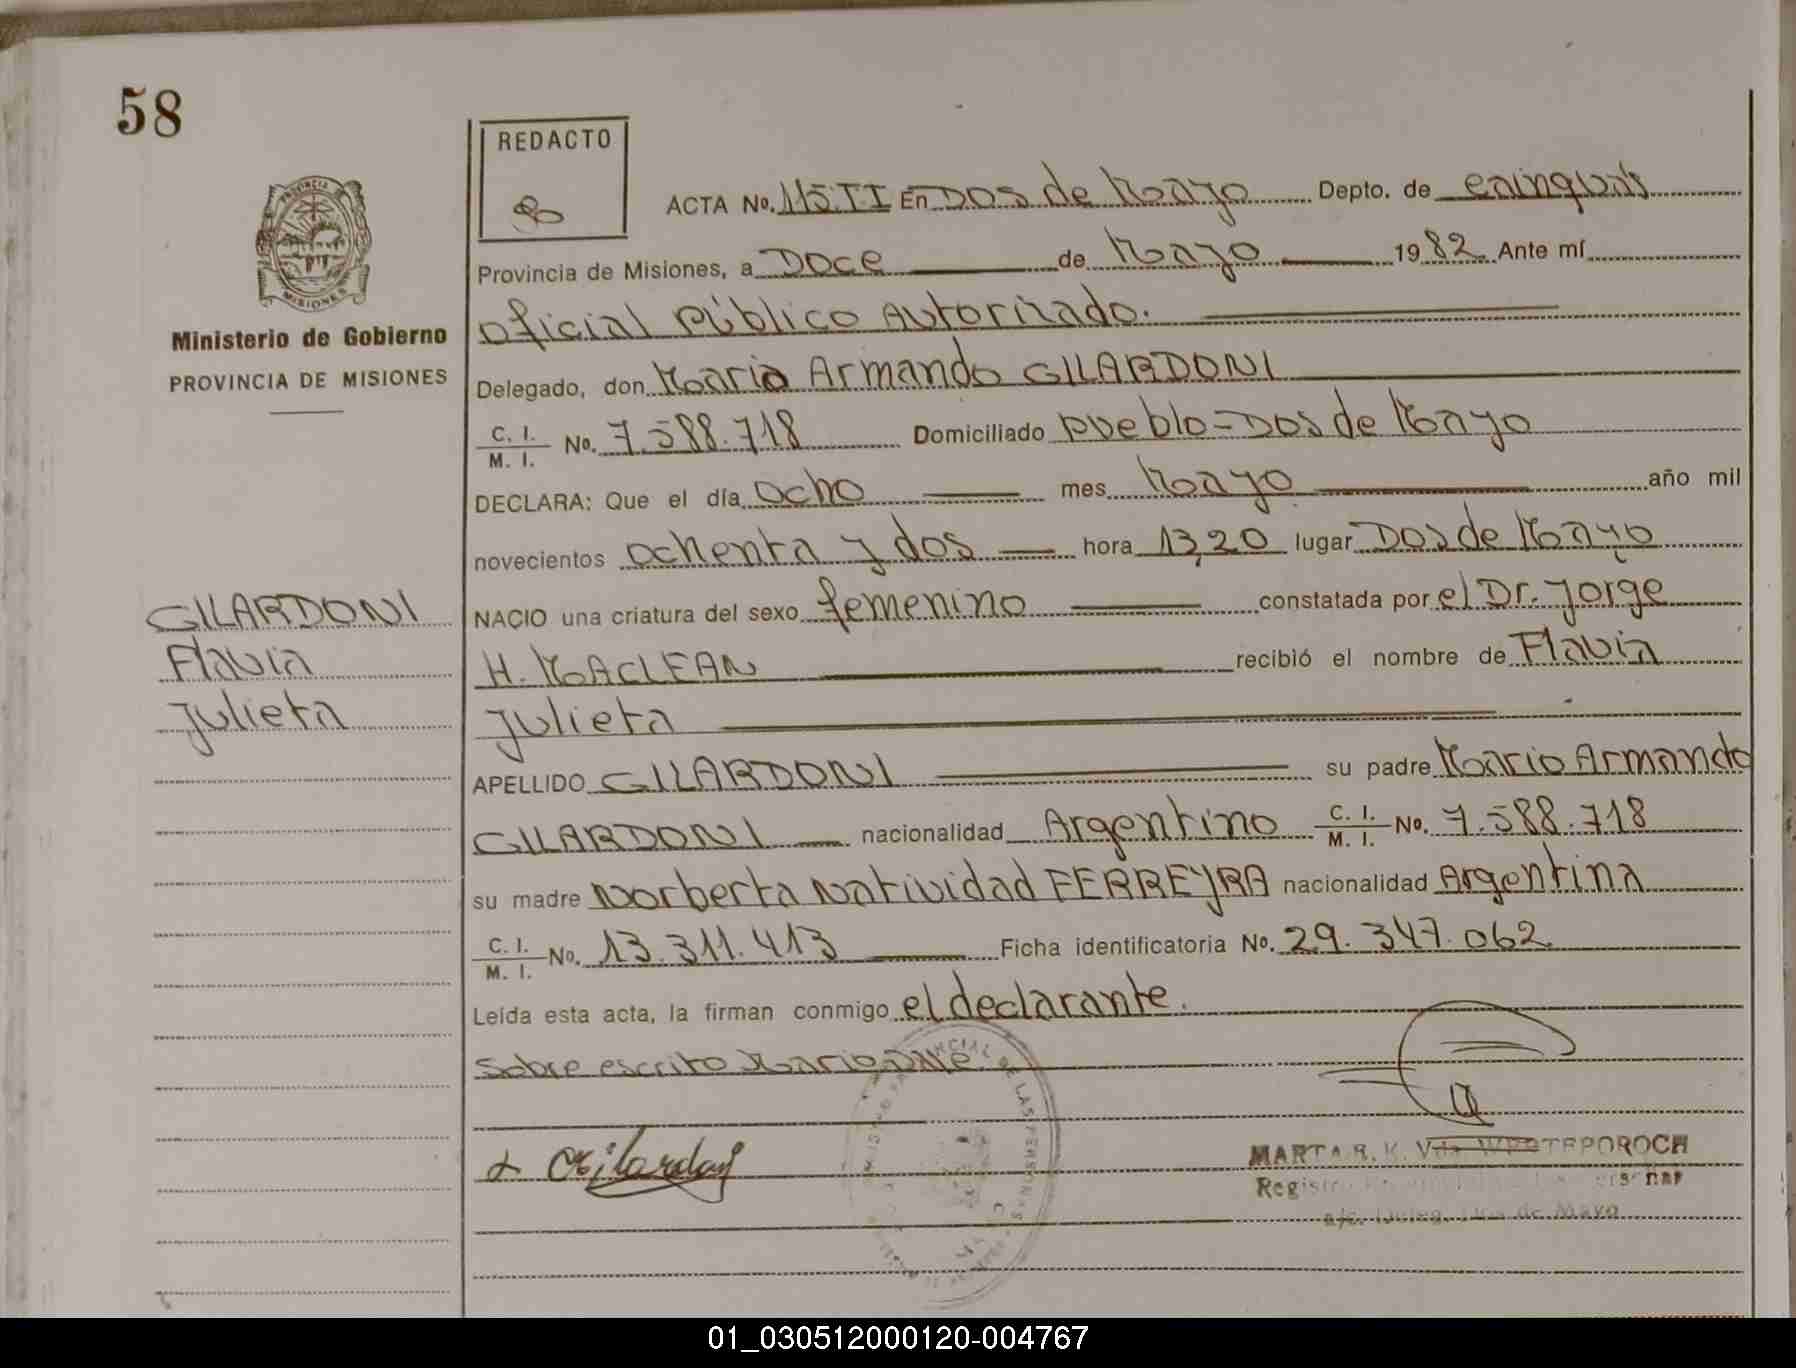 58
REDACTO
PROVINCIA
MISIONES
Ministerio de Gobierno
PROVINCIA DE MISIONES
ACTA No. 115.TI En DOS de Mayo Depto. de cainguás
Provincia de Misiones, a DOCE de Mayo 1982 Ante mí
oficial público Autorizado.
Delegado, don Mario Armando GILARDONI
C. I. / M. I. No. 7.588.718 Domiciliado pueblo-Dos de Mayo
DECLARA: Que el día ocho mes Mayo año mil
novecientos ochenta y dos hora 13,20 lugar Dos de Mayo
NACIO una criatura del sexo femenino constatada por el Dr. Jorge
H. MACLEAN recibió el nombre de Flavia
Julieta
GILARDONI
Flavia
Julieta
APELLIDO GILARDONI su padre Mario Armando
GILARDONI nacionalidad Argentino C. I. / M. I. No. 7.588.718
su madre Norberta Natividad FERREYRA nacionalidad Argentina
C. I. / M. I. No. 13.311.413 Ficha identificatoria No. 29.347.062
Leída esta acta, la firman conmigo el declarante.
Sobre escrito Mario
MARTA R. K. Vda
Registro
Deleg. Dos de Mayo
01_030512000120-004767